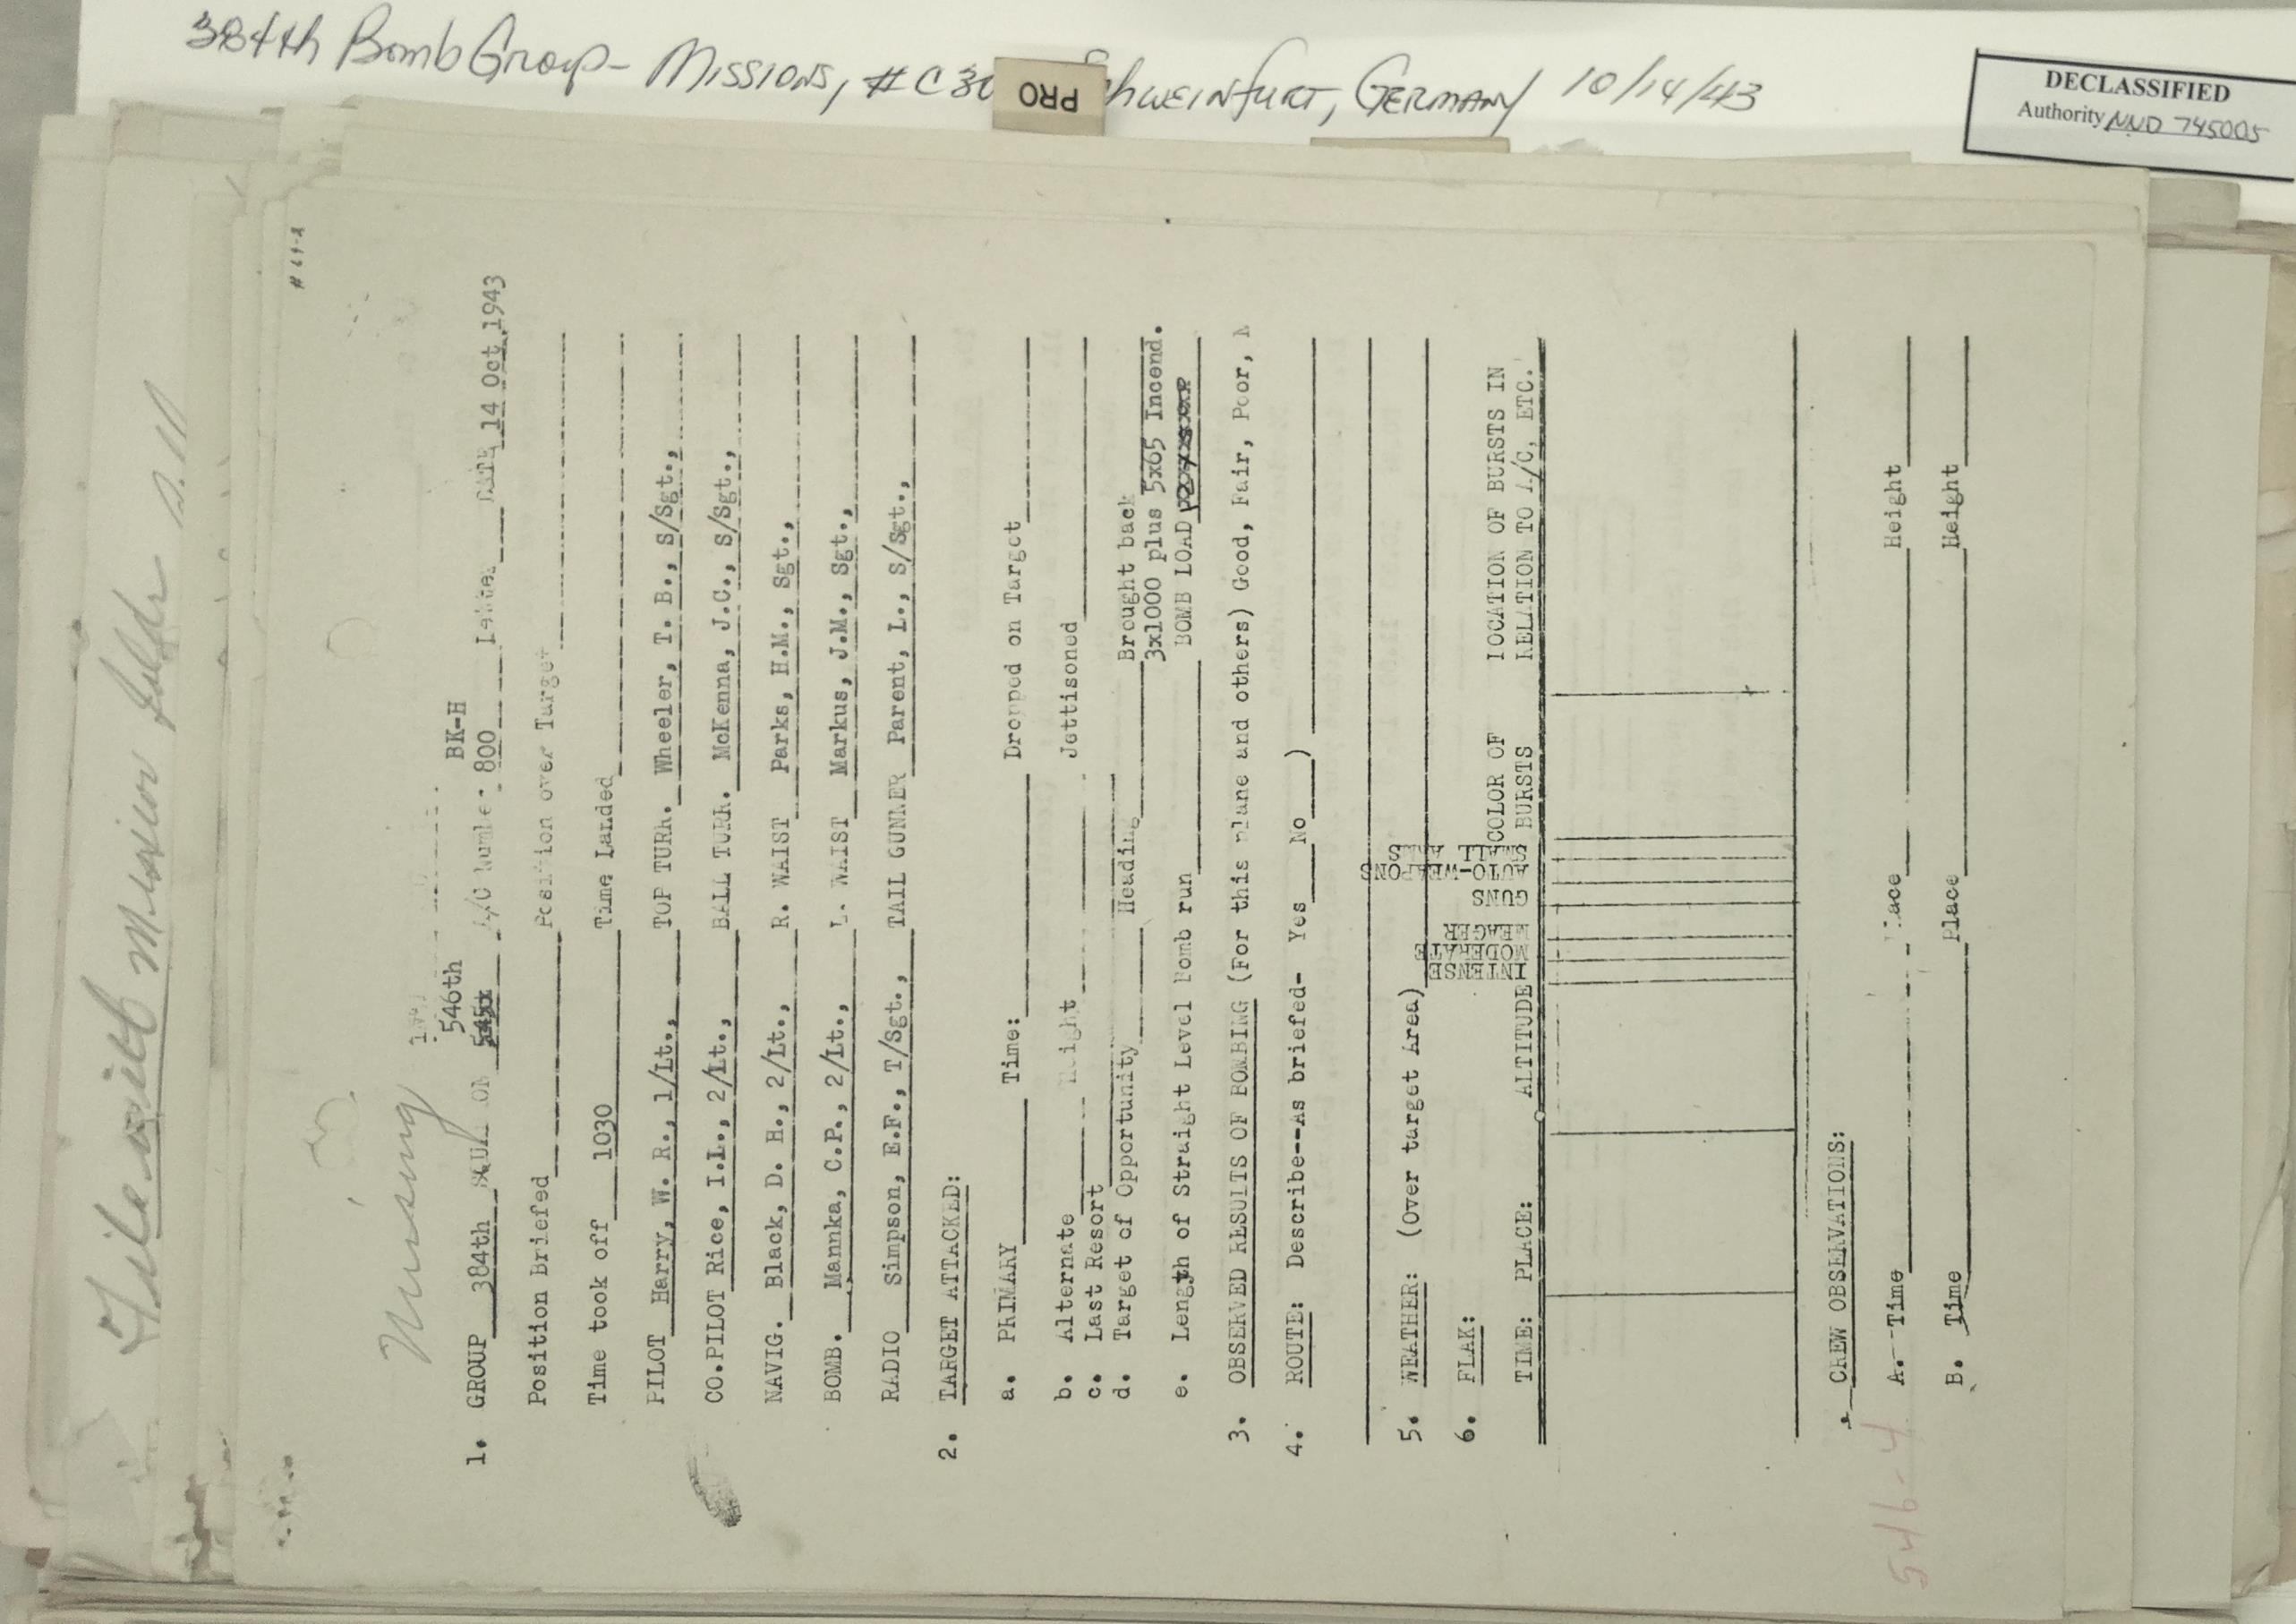 384th Bomb Group - Missions, #C30 Schweinfurt, Germany 10/14/43
PRO
DECLASSIFIED
Authority NND 745005
File with Mission
Missing
546th BK-H
1. GROUP 384th SQUADRON 545x A/C Number 800 DATE 14 Oct 1943
Position Briefed Position over Target
Time took off 1030 Time Landed
PILOT Harry, W. R., 1/Lt., TOP TURR. Wheeler, T. B., S/Sgt.,
CO.PILOT Rice, I.L., 2/Lt., BALL TURR. McKenna, J.C., S/Sgt.,
NAVIG. Black, D. H., 2/Lt., R. WAIST Parks, H.M., Sgt.,
BOMB. Mannka, C.P., 2/Lt., L. WAIST Markus, J.M., Sgt.,
RADIO Simpson, E.F., T/Sgt., TAIL GUNNER Parent, L., S/Sgt.,
2. TARGET ATTACKED:
a. PRIMARY Time: Dropped on Target
b. Alternate Height Jettisoned
c. Last Resort
d. Target of Opportunity Heading Brought back
3x1000 plus 5x65 Incend.
e. Length of Straight Level Bomb run BOMB LOAD
3. OBSERVED RESULTS OF BOMBING (For this plane and others) Good, Fair, Poor, N
4. ROUTE: Describe--As briefed- Yes No )
5. WEATHER: (Over target Area)
6. FLAK:
TIME: PLACE: ALTITUDE INTENSE MODERATE MEAGER GUNS AUTO-WEAPONS SMALL ARMS COLOR OF BURSTS LOCATION OF BURSTS IN RELATION TO A/C, ETC.
CREW OBSERVATIONS:
A. Time Place Height
B. Time Place Height
546-4